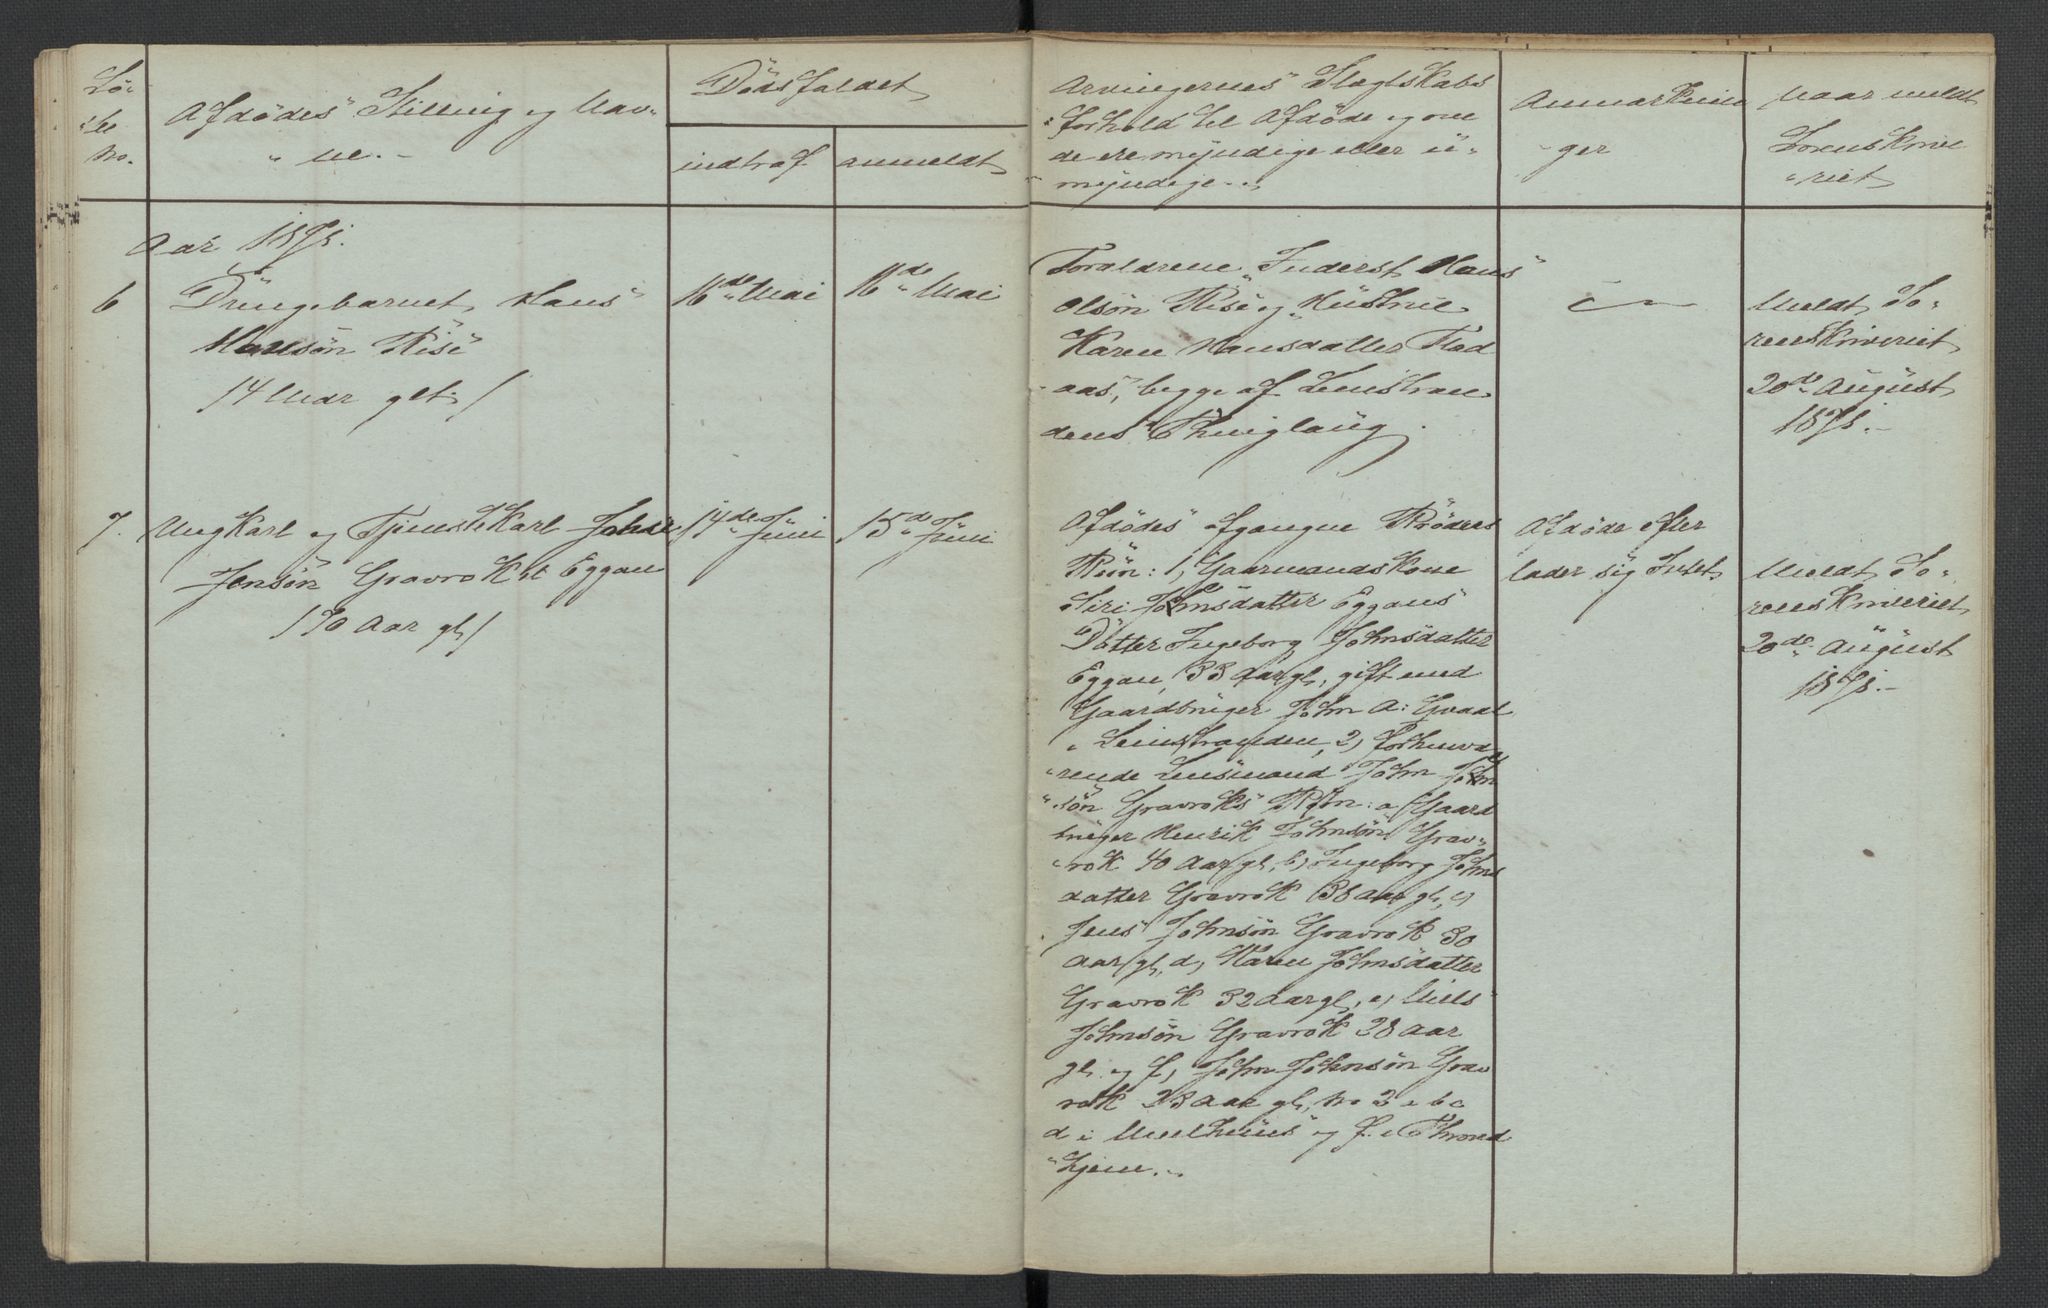 Lö-
be
No.
Afdödes Stilling og Nav-
ne.-
Dödsfaldet
indtraf
anmeldt
Arvingernes Slægtskabs
forhold til Afdöde og om
de ere myndige eller u-
myndige.-
Anmærknin
ger
Naar meldt
Sorenskrive
riet
Aar 1875.
6
Drengebarnet Hans
Hansön Risè
14 Mdr glt. /
16de Mai
16de Mai
Forældrene Inderst Hans
Olsön Risè og Hustrue
Karen Hansdatter Flad
aas, begge af Leinstran
dens Thinglaug.
Meldt So-
renskriveriet
20de August
1875.-
7.
Ungkarl og Tjenstekarl John
Jonsön Gravrok st Eggan
/ 70 Aar gl /
14de Juni
15de Juni
Afdödes afgangne Bröders
Börn: 1, Gaarmandskone
Siri Johnsdatter Eggans
Datter Ingeborg Johnsdatter
Eggan 33 Aar gl, gift med
Gaardbruger John A:
Leinstranden, 2, forhenvæ
rende Lensmand John John
sön Gravroks Börn: a Gaard
bruger Henrik Johnsön Grav-
rok 40 Aar gl, b, Ingeborg Johns
datter Gravrok 38 Aar gl, c,
Jens Johnsön Gravrok 30
Aar gl, d, Karen Johnsdatter
Gravrok 32 Aar gl, e, Niels
Johnsön Gravrok 28 Aar
gl. og f, John Johnsön Grav
rok 23 Aar gl, No 2 a b c
d i Meelhuus og f. i Thrond
hjem.-
Afdöde efter
lader sig Intet
Meldt So-
renskriveriet
20de August
1875.-